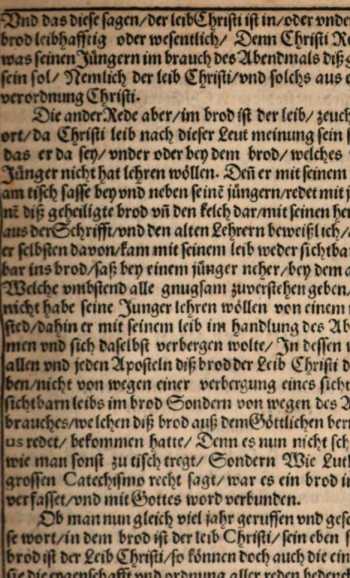 Vnd das diese sagen/der leib Christi ist in/oder vnde
brod leibhafftig oder wesentlich/ Denn Christi Re
was seinen Jüngern im brauch des Abendmals diß g
sein sol/ Nemlich der leib Christi/vnd solchs aus e
verordnung Christi.
Die ander Rede aber/im brod ist der leib/ zeuch
ort/da Christi leib nach dieser Leut meinung sein s
das er da sey/ vnder oder bey dem brod/ welches
Jünger nicht hat lehren wöllen. Deñ er mit seinem
am tisch sasse bey vnd neben seinẽ jüngern/redet mit j
nẽ diß geheiligte brod vñ den kelch dar/mit seinen hen
aus der Schrifft/vnd den alten Lehrern beweißlich/
er selbsten davon/kam mit seinem leib weder sichtba
bar ins brod/saß bey einem jünger neher/bey dem a
Welche vmbstend alle gnugsam zuverstehen geben/
nicht habe seine Junger lehren wöllen von einem
sted/dahin er mit seinem leib im handlung des Ab
men vnd sich daselbst verbergen wolte/ In dessen
allen vnd jeden Aposteln diß brod der Leib Christi
ben/nicht von wegen einer verbergung eines sicht
sichtbarn leibs im brod Sondern von wegen des A
brauches/welchen diß brod auß dem Göttlichen ber
us redet/ bekommen hatte/ Denn es nun nicht sch
wie man sonst zu tisch tregt/ Sondern Wie Lut
grossen Catechismo recht sagt/war es ein brod in
verfasset/vnd mit Gottes word verbunden.
Ob man nun gleich viel jahr geruffen vnd gesc
se wort/in dem brod ist der leib Christi/ sein eben
brod ist der Leib Christi/so können doch auch die ein
sie die eygenschafft vnd ordnung aller reden bedenck